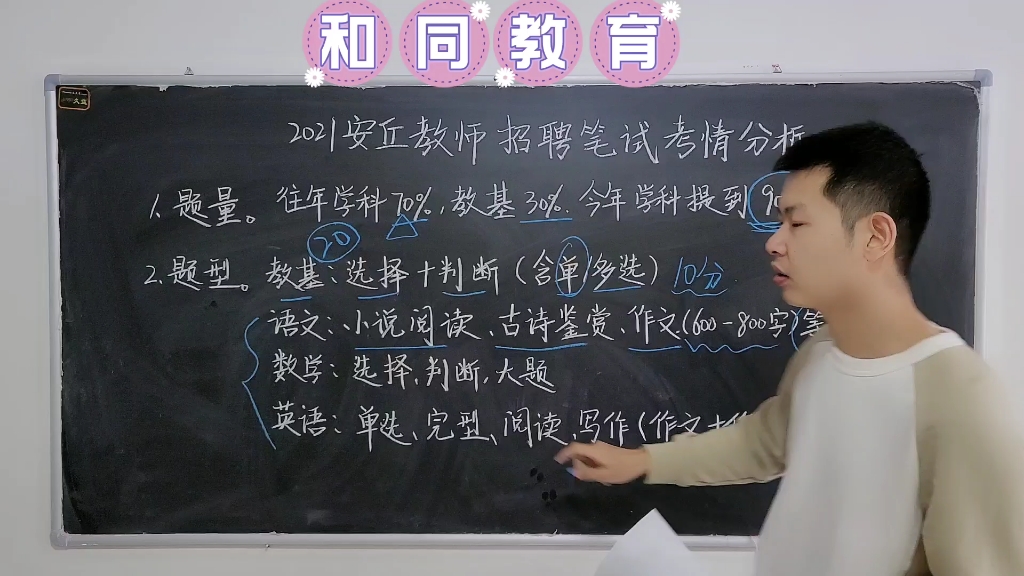 和同教育
2021安丘教师招聘笔试考情分析
1.题量。往年学科70%,教基30%.今年学科提到
70
2.题型。教基:选择+判断(含单/多选) 10分
语文:小说阅读、古诗鉴赏、作文(600-800字)
数学:选择、判断、大题
英语:单选、完型、阅读、写作(作文+